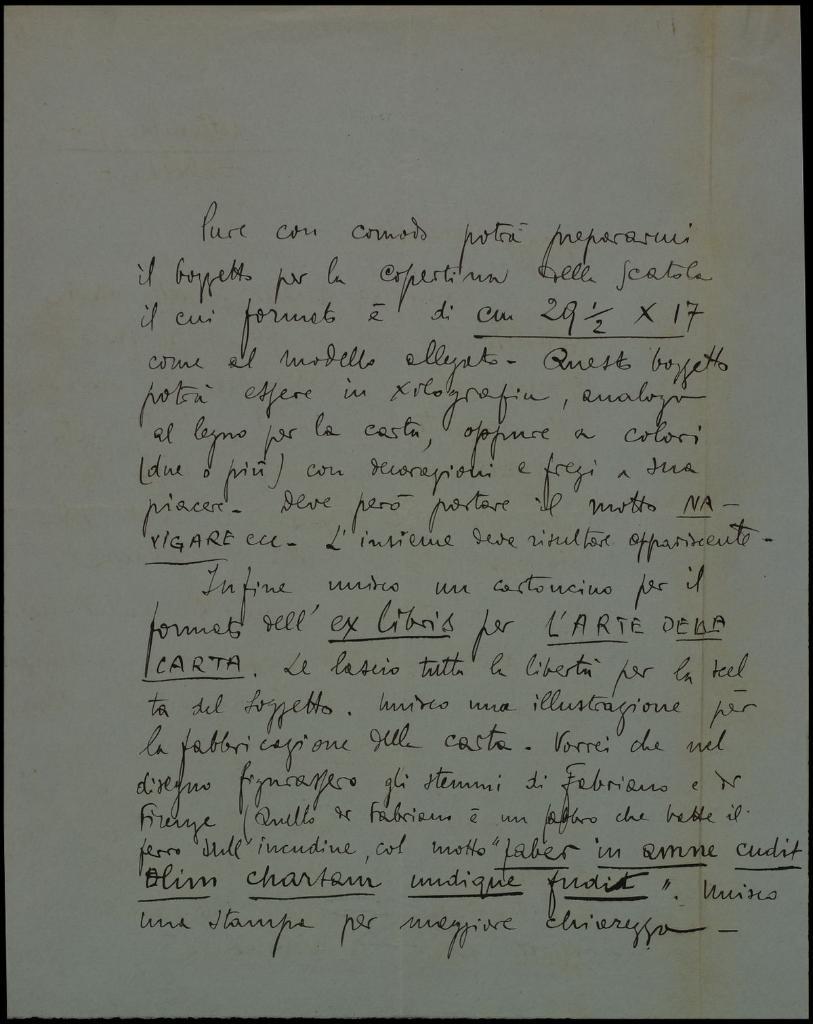 Pure con comodo potrà prepararmi
il bozzetto per la copertina della scatola
il cui formato è di cm 29 ½ X 17
come al modello allegato - Questo bozzetto
potrà essere in xilografia, analogo
al legno per la carta, oppure a colori
(due o più) con decorazioni e fregi a sua
piacere - Deve però portare il motto NA-
VIGARE ecc - L'insieme deve risultare appariscente -
Infine unisco un cartoncino per il
formato dell' ex libris per L'ARTE DELLA
CARTA. Le lascio tutta la libertà per la scel
ta del soggetto. Unisco una illustrazione per
la fabbricazione della carta - Vorrei che nel
disegno figurassero gli stemmi di Fabriano e di
Firenze (Quello di Fabriano è un fabbro che batte il
ferro sull'incudine, col motto "faber in amne cudit
olim chartam undique fudit". Unisco
una stampa per maggiore chiarezza -